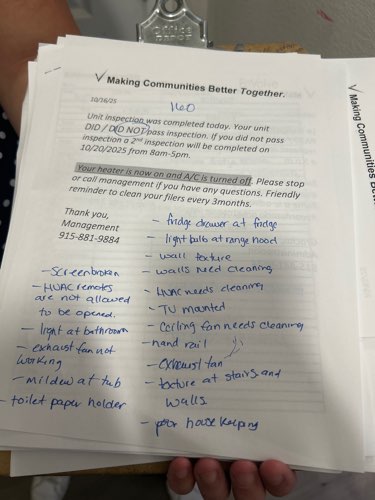 √ Making Communities Better Together.
10/16/25
160
Unit inspection was completed today. Your unit
DID / DID NOT pass inspection. If you did not pass
inspection a 2nd inspection will be completed on
10/20/2025 from 8am-5pm.
Your heater is now on and A/C is turned off. Please stop
or call management if you have any questions. Friendly
reminder to clean your filers every 3months.
Thank you,
Management
915-881-9884
- fridge drawer at fridge
- light bulb at range hood
- wall texture
- walls need cleaning
- HVAC needs cleaning
- TV mounted
- Ceiling fan needs cleaning
- hand rail
- exhaust fan
- texture at stairs and
walls
- poor house keeping
- Screen broken
- HVAC remotes
are not allowed
to be opened.
- light at bathroom
- exhaust fan not
working
- mildew at tub
- toilet paper holder
√ Making Communities Be